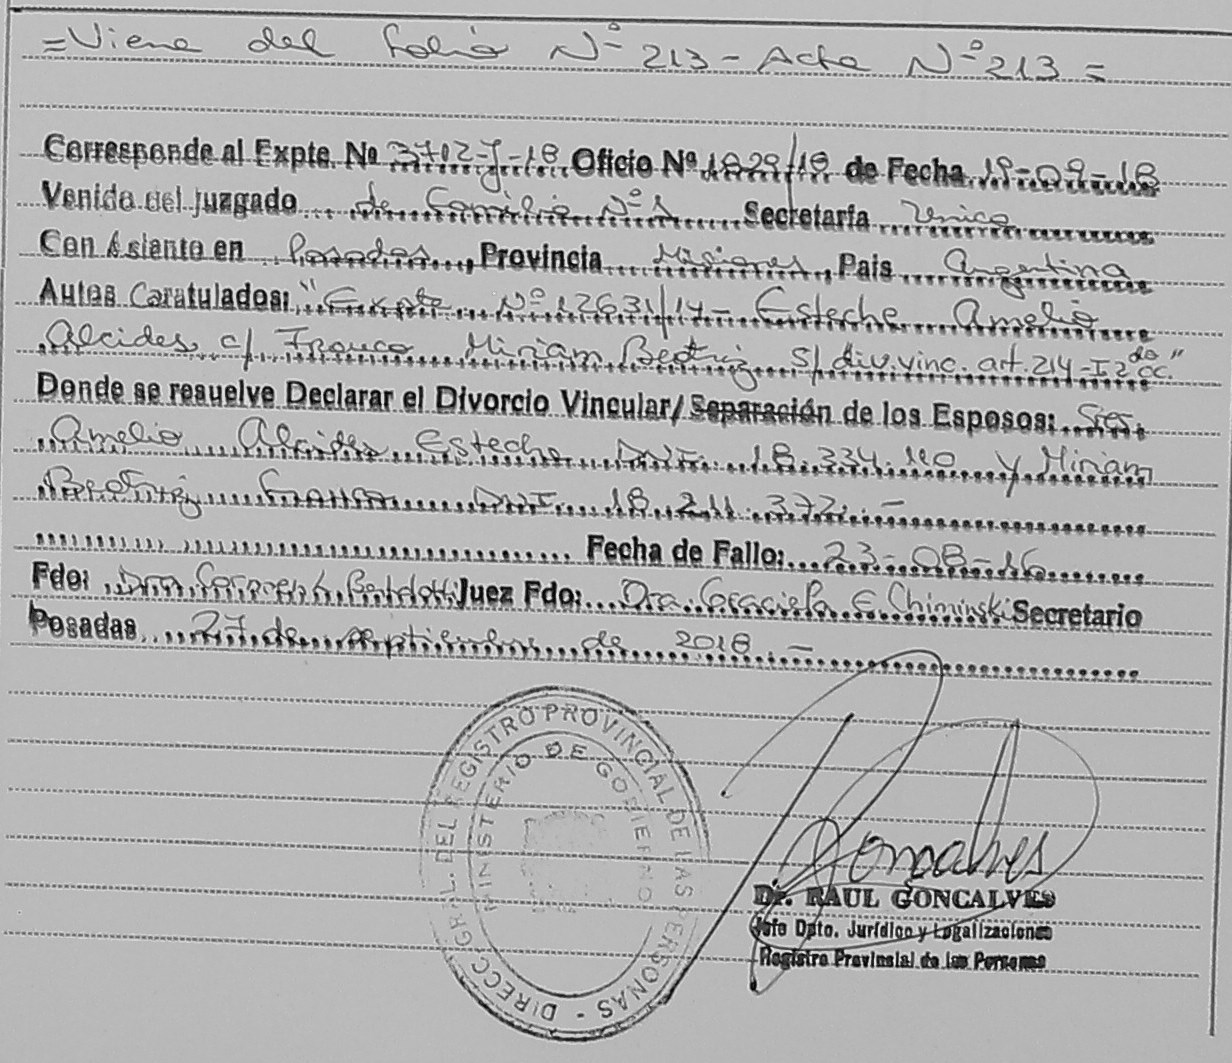 =Viene del folio Nº 213 - Acta Nº 213 =
Corresponde al Expte. Nº 3702-J-18 Oficio Nº 1829/18 de Fecha 19-09-18
Venido del Juzgado de Familia Nº 1 Secretaría Unica
Con Asiento en Posadas, Provincia Misiones, País Argentina
Autos Caratulados: "Expte Nº 12631/14 - Esteche Amelio
Alcides c/ Franco Miriam Beatriz s/ div. vinc. art. 214 - I 2do CC."
Donde se resuelve Declarar el Divorcio Vincular/ Separación de los Esposos: Sres.
Amelio Alcides Esteche DNI. 18.334.110 y Miriam
Beatriz Franco DNI. 18.211.372.-
Fecha de Fallo: 23-08-16
Fdo: Dra. Juez Fdo: Dra. Graciela E Chiminski Secretario
Posadas 27 de septiembre de 2018.-
DIRECC. GRAL. DEL REGISTRO PROVINCIAL DE LAS PERSONAS -
MINISTERIO DE GOBIERNO
Goncalves
Dr. RAUL GONCALVES
Jefe Dpto. Jurídico y Legalizaciones
Registro Provincial de las Personas